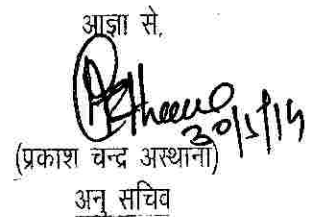 आज्ञा से,
30/5/14
(प्रकाश चन्द्र अस्थाना)
अनु सचिव